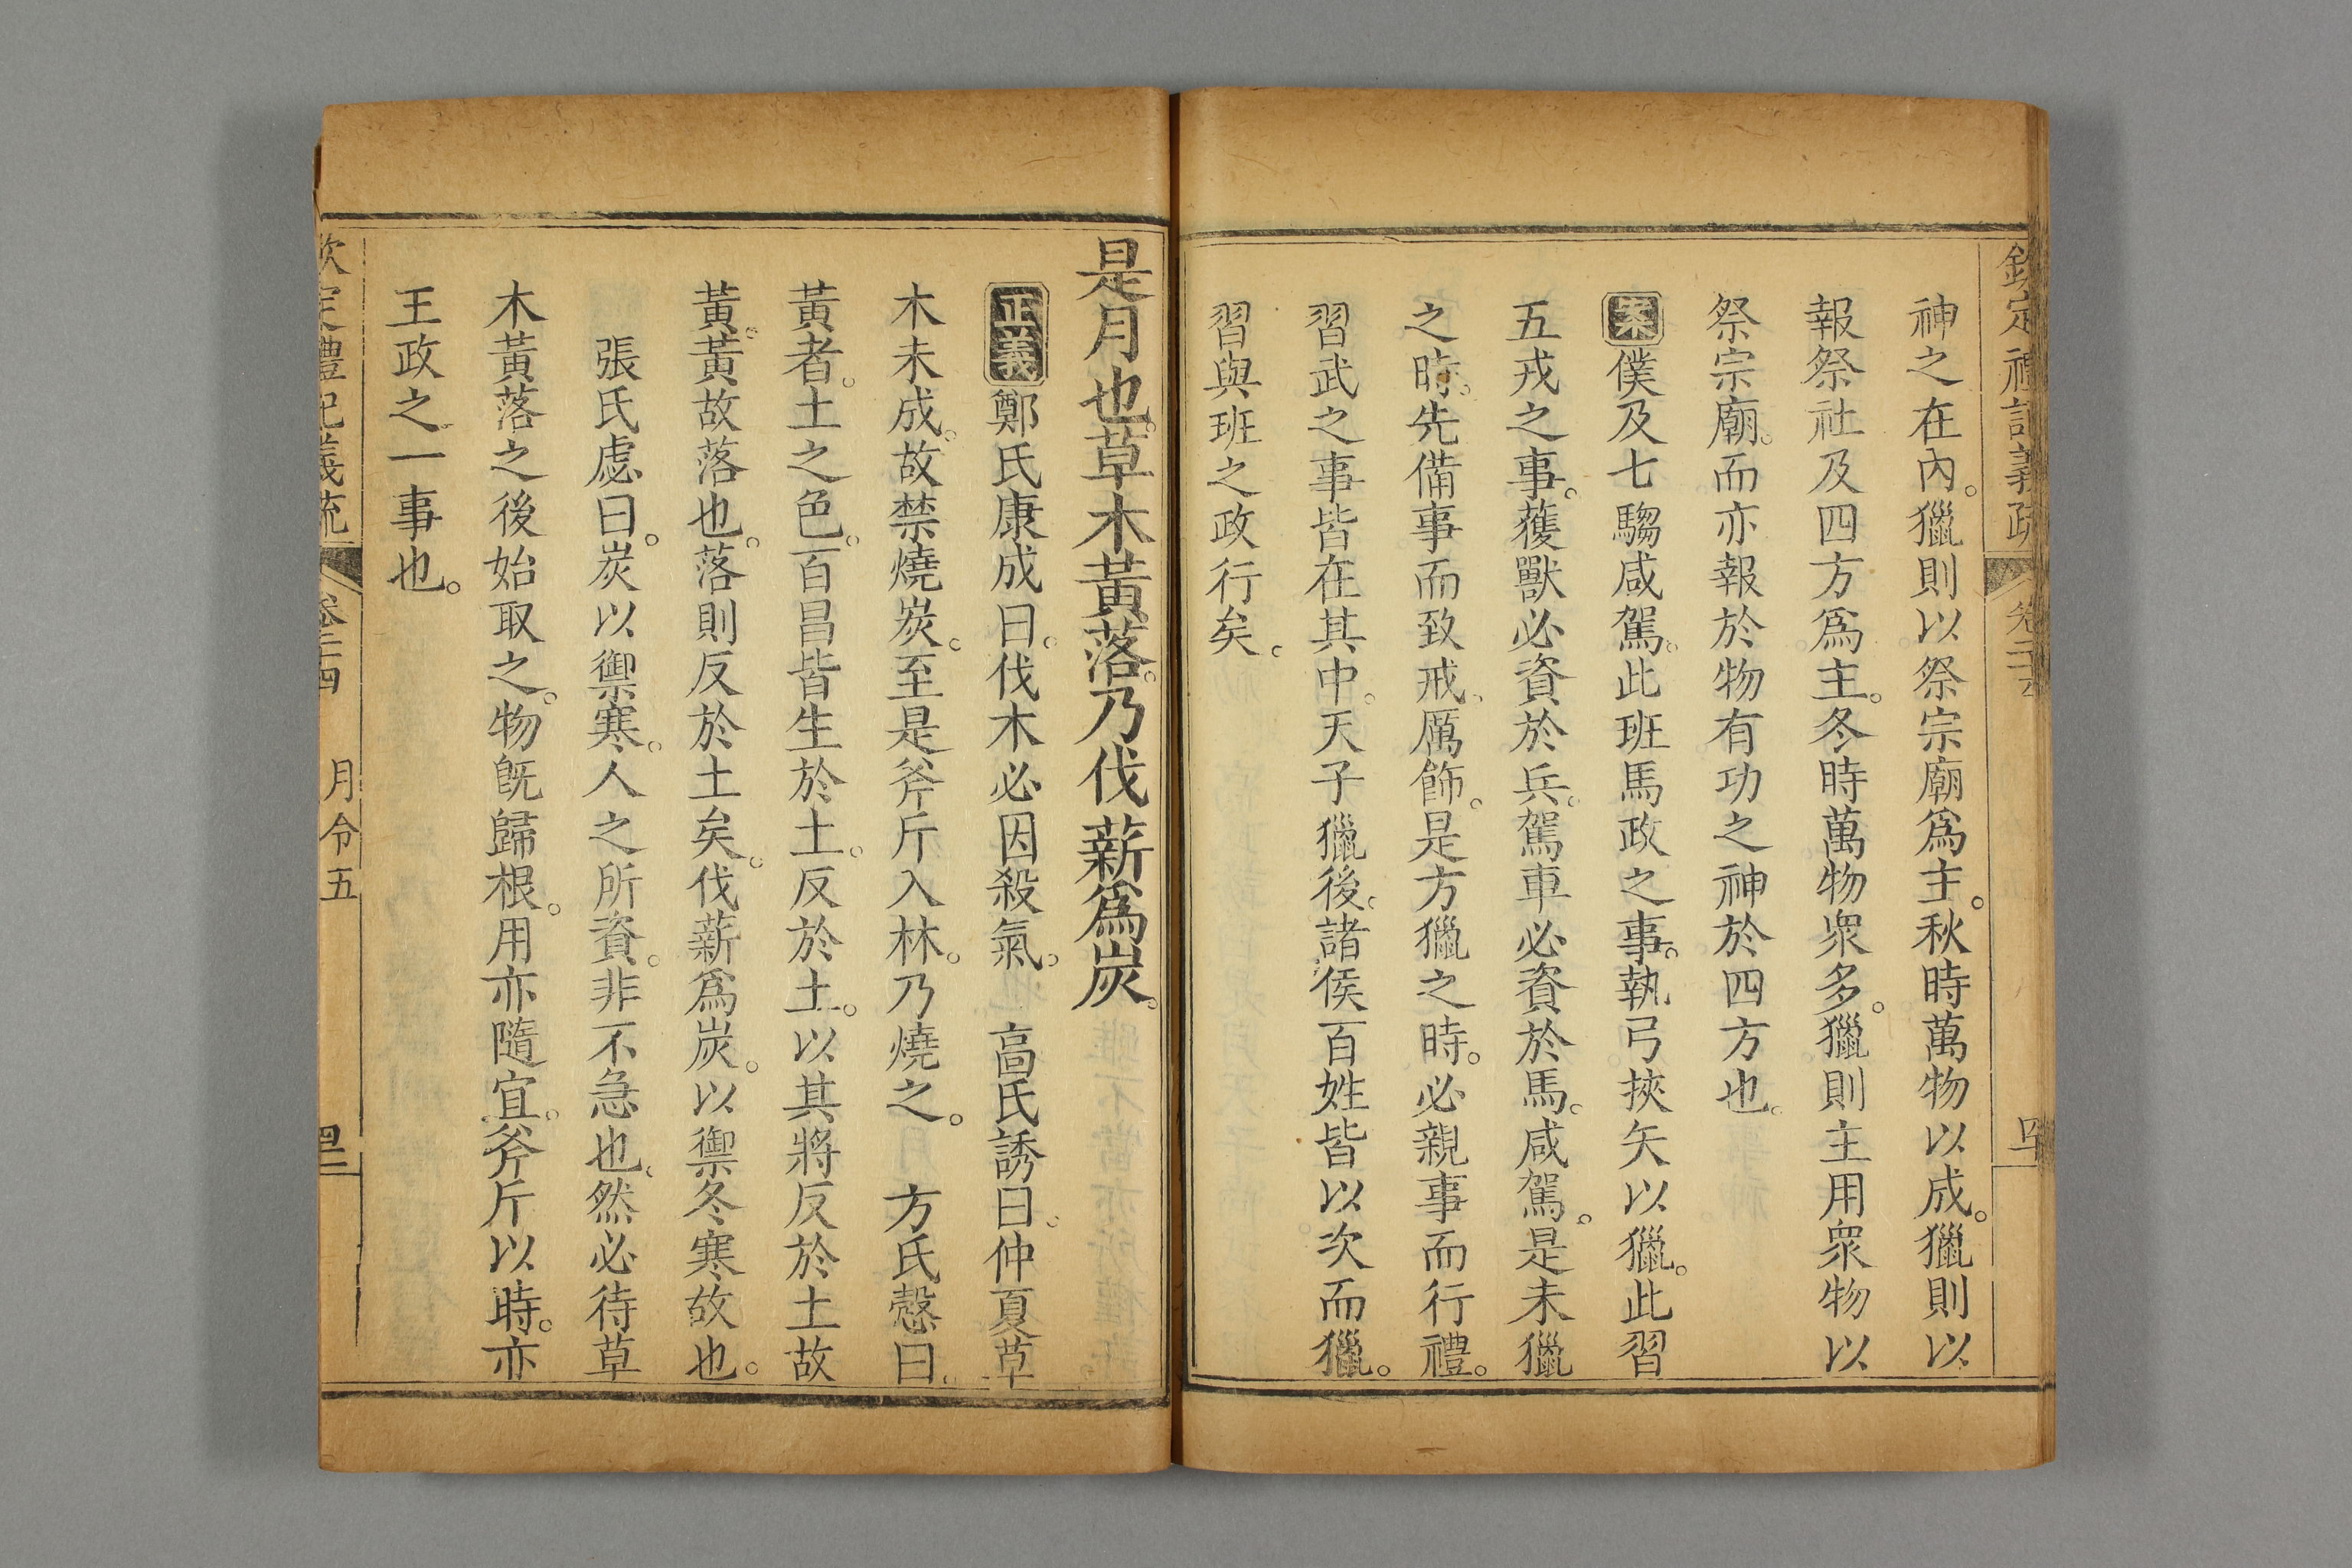 欽定禮記義疏 卷二十四
神之在內。獵則以祭宗廟爲主。秋時萬物以成。獵則以
報祭社及四方爲主。冬時萬物衆多。獵則主用衆物以
祭宗廟。而亦報於物有功之神於四方也。
案僕及七騶咸駕。此班馬政之事。執弓挾矢以獵。此習
五戎之事。蒦獸必資於兵。駕車必資於馬。咸駕。是未獵
之時。先備事而致戒、厲飾。是方獵之時。必親事而行禮。
習武之事皆在其中。天子獵後。諸侯百姓皆以次而獵。
習與班之政行矣。
是月也。草木黃落。乃伐薪爲炭。
正義鄭氏康成曰。伐木必因殺氣。 高氏誘曰。仲夏草
木未成。故禁燒炭。至是斧斤入林。乃燒之。 方氏慤曰。
黃者。土之色。百昌皆生於土。反於土。以其將反於土故
黃。黃故落也。落則反於土矣。伐薪爲炭。以禦冬寒故也。
張氏虙曰。炭以禦寒。人之所資。非不急也。然必待草
木黃落之後始取之。物既歸根。用亦隨宜。斧斤以時。亦
王政之一事也。
欽定禮記義疏 卷二十四 月令五